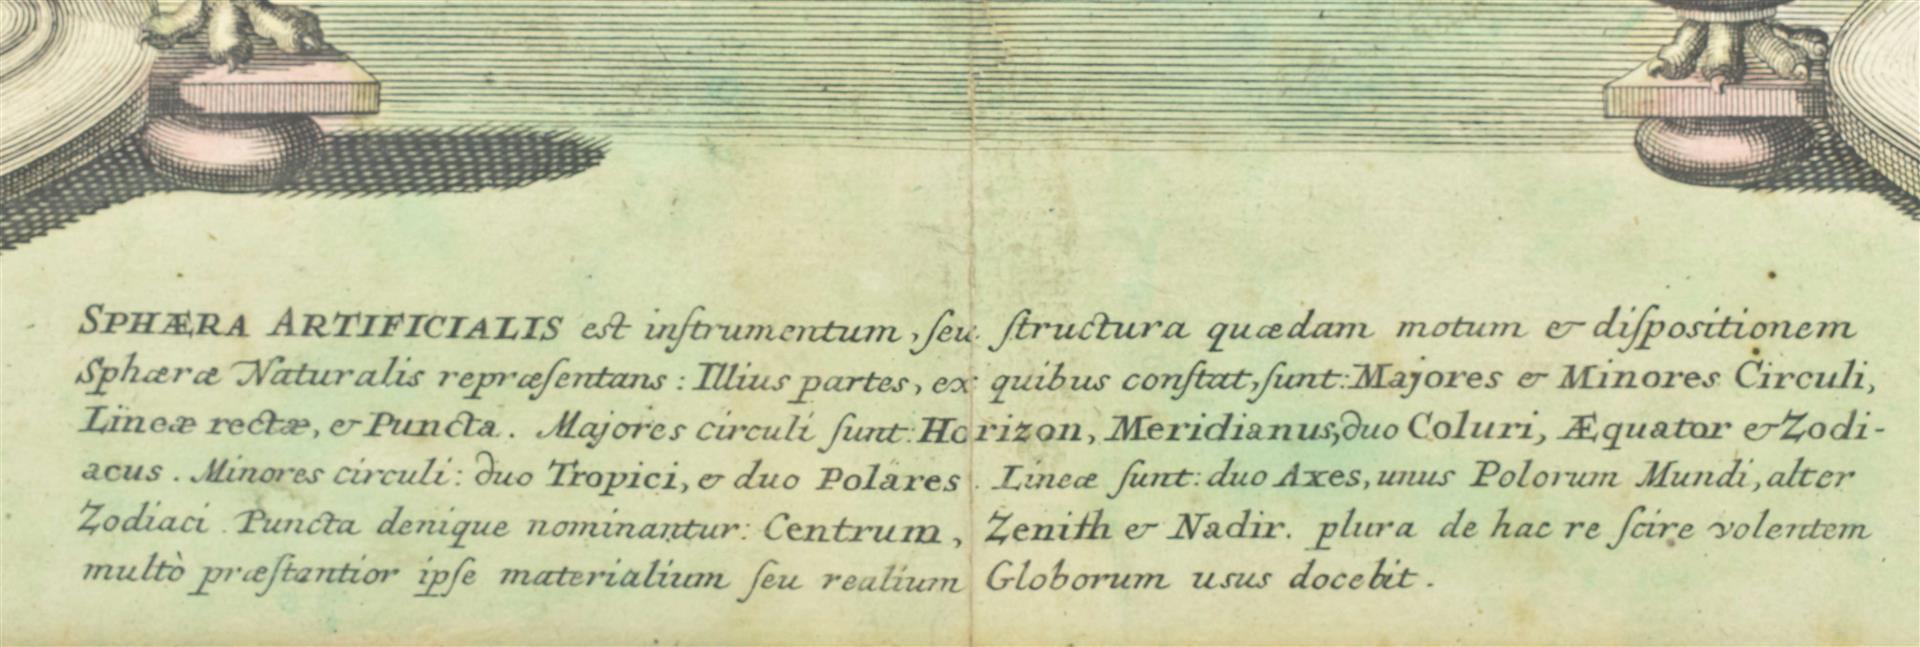 SPHÆRA ARTIFICIALIS est inſtrumentum, ſeu ſtructura quædam motum & diſpositionem
Sphæræ Naturalis repræſentans: Illius partes, ex quibus conſtat, ſunt: Majores & Minores Circuli,
Lineæ rectæ, & Puncta. Majores circuli ſunt: Horizon, Meridianus, duo Coluri, Æquator & Zodi-
acus. Minores circuli: duo Tropici, & duo Polares. Lineæ ſunt: duo Axes, unus Polorum Mundi, alter
Zodiaci. Puncta denique nominantur: Centrum, Zenith & Nadir. plura de hac re ſcire volentem
multò præſtantior ipſe materialium ſeu realium Globorum usus docebit.